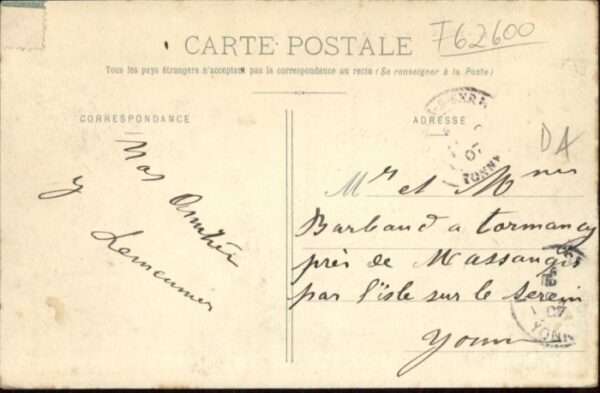 F62600
CARTE POSTALE
Tous les pays étrangers n'acceptent pas la correspondance au recto (Se renseigner à la Poste)
CORRESPONDANCE
ADRESSE
DA
07
YONNE
Nos Amitiés
Mr et Mme
Barbaud a tormancy
près de Massangis
par l'isle sur le Serein
Yonne
07
YONNE